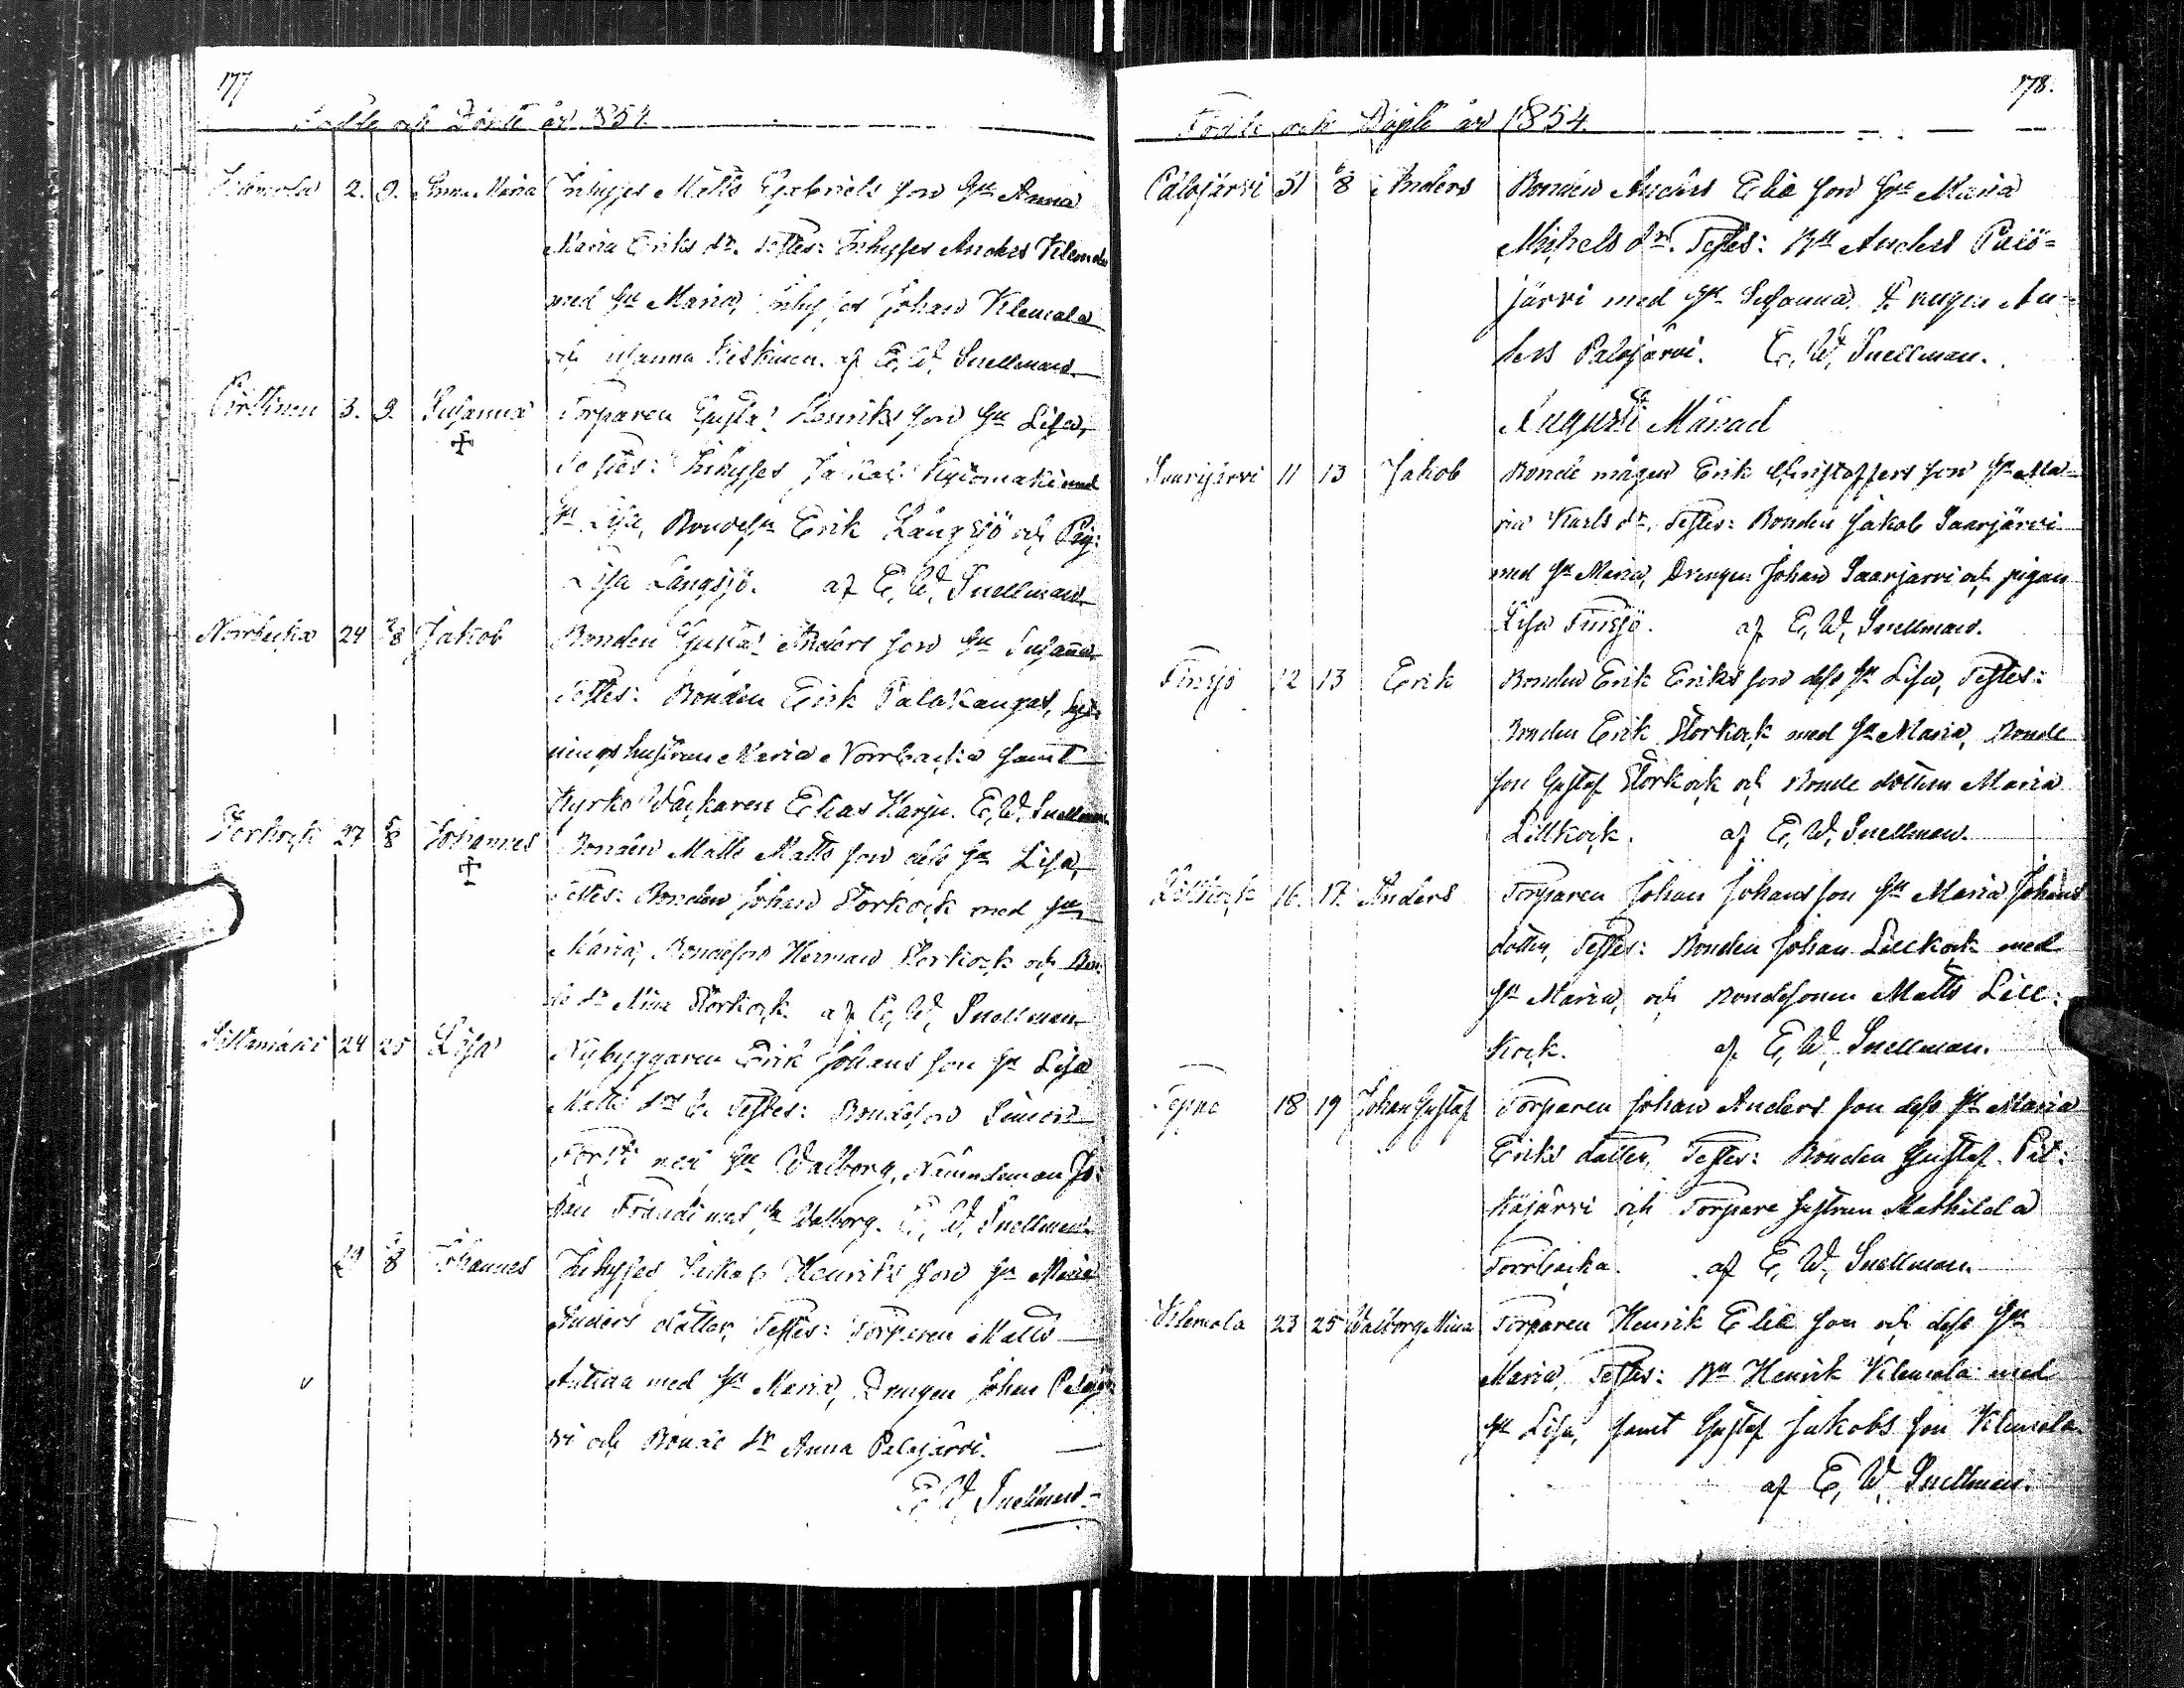 177
Födde och Döpte år 1854.
Klemola 2. 9. Anna Maria Inhyses Matts Gabriels son Hu Anna
Maria Eriks dr. Testes: Inhyses Anders Klemola
med Hu Maria, Inhyses Johan Klemola
och Susanna Keskinen. af E. W. Snellman
3. 9. Susanna Torparen Gustaf Henriks son Hu Lisa,
Testes: Inhyses Jakob med
Hu Lisa, Bondeson Erik Långsjö och Pig:
Lisa Långsjö. af E. W. Snellman
Norrbacka 24 2/8 Jakob Bonden Gustaf Anders son Hu Susanna
Testes: Bonden Erik Palokangas, Syt-
ningshustrun Maria Norrbacka samt
Kyrko Wäckaren Elias Harju. E. W. Snellman
Storkock 27 5/8 Johannes Bonden Matts Matts son dess Hu Lisa,
Testes: Bonden Johan Storkock med Hu
Maria, Bondeson Herman Storkock och Bon-
de dr Mina Storkock. af E. W. Snellman
24 25 Lisa Nybyggaren Erik Johans son Hu Lisa
Matts dr Testes: Bondeson Simon
med Hu Walborg, Nämndeman Jo-
han Frändi med Hu Walborg. E. W. Snellman
29 /8 Johannes Inhyses Jakob Henriks son Hu Maria
Anders dotter, Testes: Torparen Matts
Anttila med Hu Maria, Drengen Johan Palojär-
vi och Bonde dr Anna Palojärvi.
E. W. Snellman
178.
Födde och Döpte år 1854.
Palojärvi 31 6/8 Anders Bonden Anders Elie son Hu Maria
Michels dr. Testes: Bn Anders Palo-
järvi med Hu Susanna, Drengen An-
ders Palojärvi. E. W. Snellman.
Augusti Månad
Saarijärvi 11 13 Jakob Bonde mågen Erik Christoffers son Hu Ma-
ria Karls dr, Testes: Bonden Jakob Saarjärvi
med Hu Maria, Drengen Johan Saarjärvi och pigan
Lisa Finsjö. af E. W. Snellman.
Finsjö 12 13 Erik Bonden Erik Eriks son dess Hu Lisa, Testes:
Bonden Erik Storkock med Hu Maria, Bonde
son Gustaf Storkock och Bonde dottern Maria
Lillkock. af E. W. Snellman.
Lillkock 16. 17. Anders Torparen Johan Johans son Hu Maria Johans
dotter, Testes: Bonden Johan Lillkock med
Hu Maria, och Bondesonen Matts Lill-
kock. af E. W. Snellman.
Teppo 18 19 Johan Gustaf Torparen Johan Anders son dess Hu Maria
Eriks dotter, Testes: Bonden Gustaf Pit-
käjärvi och Torpare hustrun Mathilda
Torrbacka. af E. W. Snellman.
Klemola 23 25 Walborg Mina Torparen Henrik Elie son och dess Hu
Maria, Testes: Bn Henrik Klemola med
Hu Lisa, samt Gustaf Jakobs son Klemola.
af E. W. Snellman.